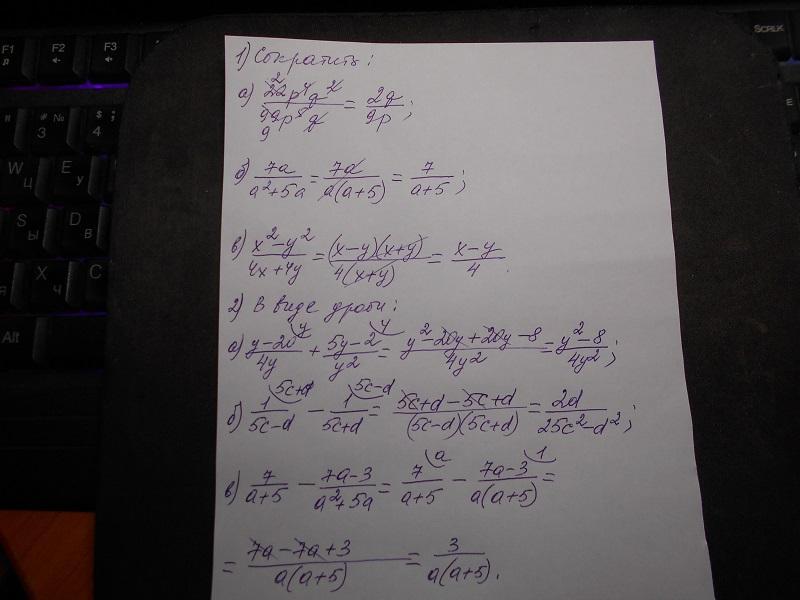 F1 F2 F3
Scrlk
# 3 $ ; 4
W Ц E У
S Ы D В
X Ч C
Alt
1) Сократить:
а) 22p⁴q²/99p⁵q = 2q/9p;
б) 7a/(a²+5a) = 7a/(a(a+5)) = 7/(a+5);
в) (x²-y²)/(4x+4y) = (x-y)(x+y)/(4(x+y)) = (x-y)/4.
2) В виде дроби:
а) (y-20)/4y + (5y-2)/y² = (y²-20y+20y-8)/4y² = (y²-8)/4y²;
б) 1/(5c-d) - 1/(5c+d) = (5c+d-5c+d)/((5c-d)(5c+d)) = 2d/(25c²-d²);
в) 7/(a+5) - (7a-3)/(a²+5a) = 7/(a+5) - (7a-3)/(a(a+5)) =
= (7a-7a+3)/(a(a+5)) = 3/(a(a+5)).